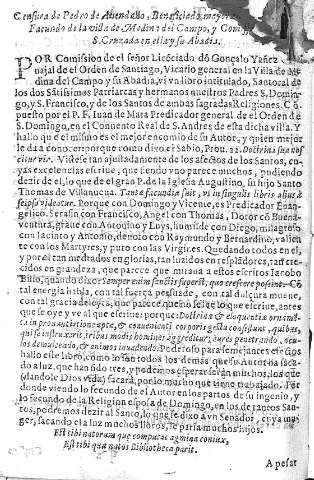 Censura de Pedro de Auendaño, Beneficiado
Facundo de la villa de Medina del Campo, y
Cruzada en ella y su Abadia.
POR Comission de el señor Licēciado dō Gonçalo Yañez
de el Orden de Santiago, Vicario general en la Villa de
dina del Campo y su Abadia, vi vn libro intitulado, Santoral de
los dos Sātissimos Patriarcas y hermanos nuestros Padres S. Domin
go, y S. Francisco, y de los Santos de ambas sagradas Religiones. Cō
puesto por el P. F. Iuan de Mata Predicador general de el Orden de
S. Domingo, en el Conuento Real de S. Andres de esta dicha villa. Y
hallo que el mismo es el mejor encomio de su Autor, y quien mejor
le da a conocer: porque como dixo el Sabio, Prou. 12. Doctrina sua nos
citur vir. Vistese tan ajustadamente de los afectos de los Santos, cu
yas excelencias escriue, que siendo vno parece muchos, pudiendo
dezir de el, lo que de el gran P. de la Iglesia Augustino, su hijo Santo
Thomas de Villanueua. Tanta facundia fuit, vt in singulis libris alius à
seipso videatur. Porque con Domingo y Vicente, es Predicador Euan
gelico. Serafin con Francisco, Angel con Thomas, Dotor cō Buena
ventura, graue con Antonino y Luys, humilde con Diego, milagroso
con Iacinto y Antonio, deuoto con Raymundo y Bernardino, valien
te con los Martyres, y puro con las Virgines. Quedando todos en el,
y por el tan medrados en glorias, tan luzidos en resplādores, tan cre
cidos en grandeza, que parece que miraua a estos escritos Iacobo
Bilio, quando dixo: Semper enim sanctis superst, quo crescere possint. Cō
tal energia habla, con tal fuerça persuade, con tal dulçura mueue,
con tal gracia deleyta, que parece que no se lee lo que escriue, antes
que se oye y ve al que escriue: porque: Doctrina & eloquentia
ta in pronunciatione apte, & conuenienti corporis gestu consistunt, quibus,
qui se instruxerit, tribus modis homines aggreditur; aures penetrando,
los demulcendo, & animos inuadendo.
hallo este libro, como lo son todos los demas que su Autor ha saca
do a luz, que han sido tres, y podemos esperar serān muchos, los que
(dandole Dios vida) sacarà, por lo mucho que tiene trabajado. Por
donde viendo lo fecundo de el Autor en los partos de su ingenio, y
lo fecundo de la Religion esposa de Domingo, en los de tantos San
tos, podremos dezir al Santo, lo que se dixo a vn Senador, cuya mu
ger, sacando el a luz muchos libros, le paria muchos hijos.
Est tibi natorum que computat agmina coniux,
Est tibi qua natos Bibliotheca parit.
A pesar